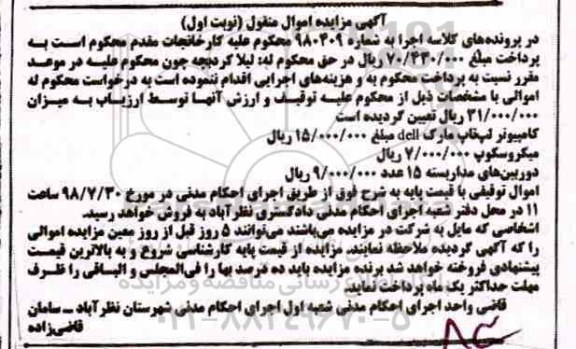 آگهی مزایده اموال منقول (نوبت اول)
در پرونده‌های کلاسه اجرا به شماره ۹۸۰۴۰۹ محکوم علیه کارخانجات مقدم محکوم است به
پرداخت مبلغ ۷۰/۴۳۰/۰۰۰ ریال در حق محکوم له: لیلا کردبچه چون محکوم علیه در موعد
مقرر نسبت به پرداخت محکوم به و هزینه‌های اجرایی اقدام ننموده است به درخواست محکوم له
اموالی با مشخصات ذیل از محکوم علیه توقیف و ارزش آنها توسط ارزیاب به میزان
۳۱/۰۰۰/۰۰۰ ریال تعیین گردیده است
کامپیوتر لپ‌تاپ مارک dcll مبلغ ۱۵/۰۰۰/۰۰۰ ریال
میکروسکوپ ۷/۰۰۰/۰۰۰ ریال
دوربین‌های مداربسته ۱۵ عدد ۹/۰۰۰/۰۰۰ ریال
اموال توقیفی با قیمت پایه به شرح فوق از طریق اجرای احکام مدنی در مورخ ۹۸/۷/۳۰ ساعت
۱۱ در محل دفتر شعبه اجرای احکام مدنی دادگستری نظرآباد به فروش خواهد رسید.
اشخاصی که مایل به شرکت در مزایده می‌باشند می‌توانند ۵ روز قبل از روز معین مزایده اموالی
را که آگهی گردیده ملاحظه نمایند. مزایده از قیمت پایه کارشناسی شروع و به بالاترین قیمت
پیشنهادی فروخته خواهد شد برنده مزایده باید ده درصد بها را فی‌المجلس و الباقی را ظرف
مهلت حداکثر یک ماه پرداخت نماید.
قاضی واحد اجرای احکام مدنی شعبه اول اجرای احکام مدنی شهرستان نظرآباد ــ سامان
قاضی‌زاده
۰۲۱-۸۸۳۴۹۶۷۰-۵